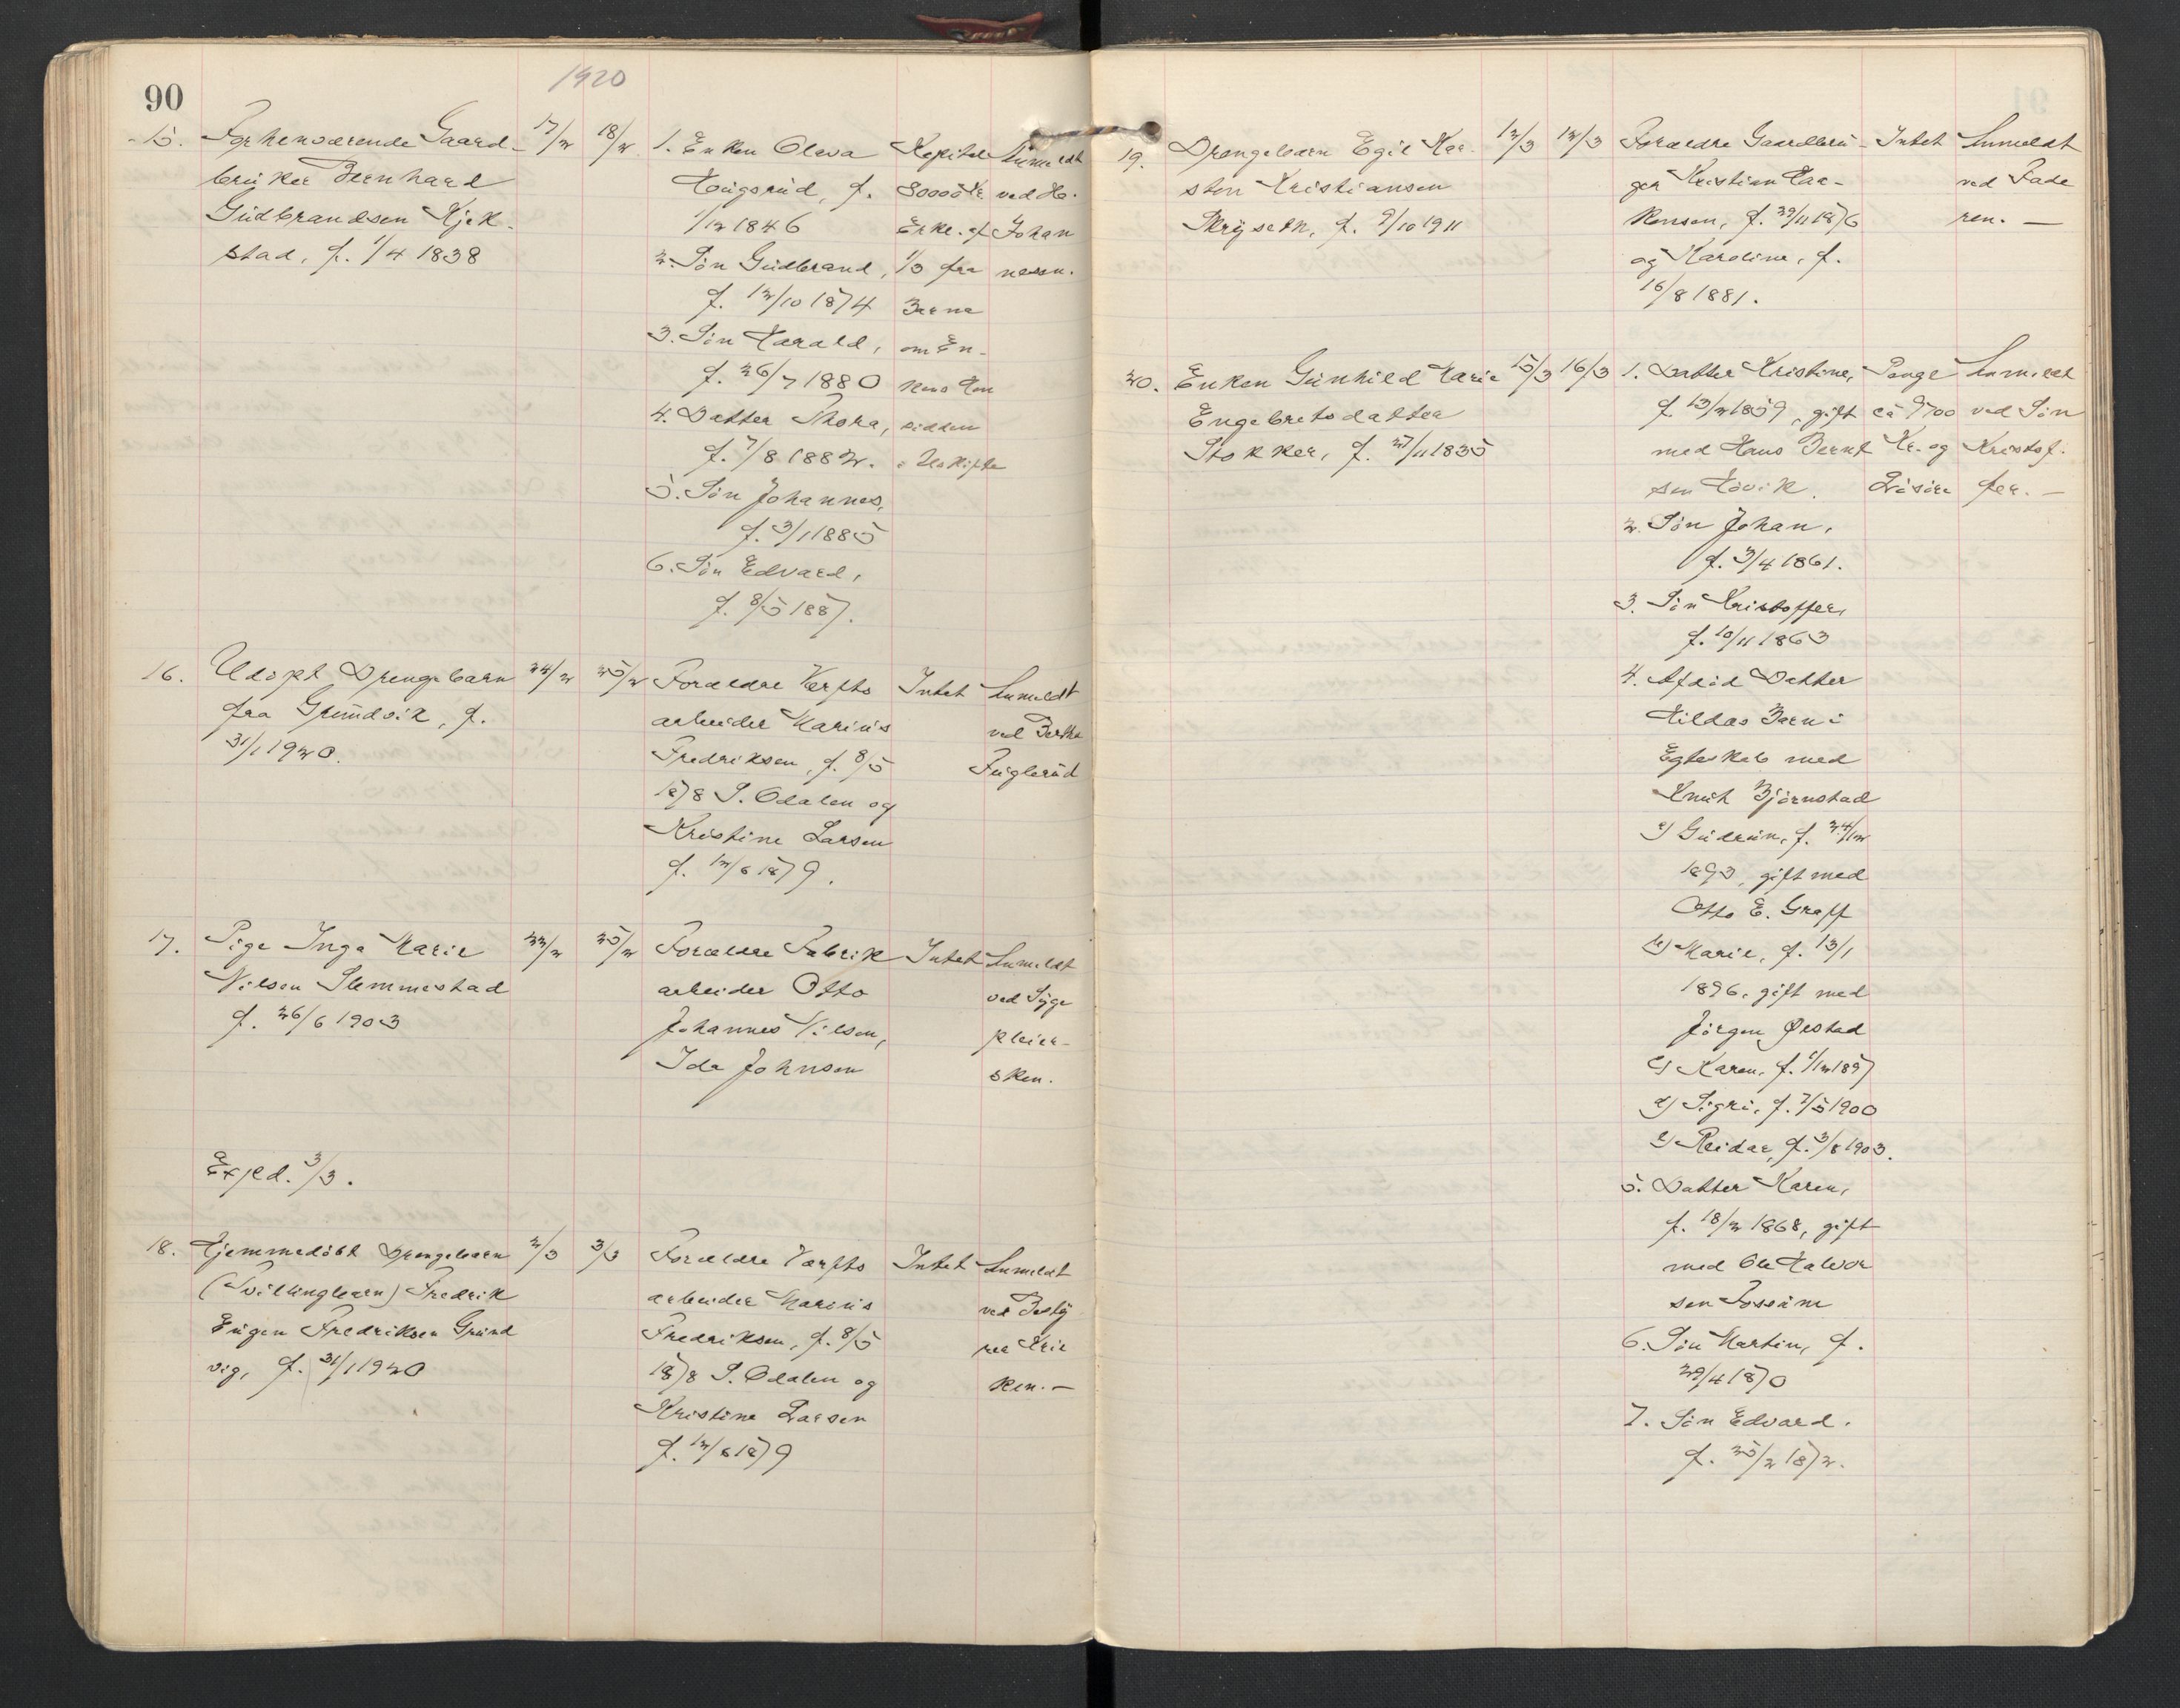 90
1920
15. Forhenværende Gaard- 17/2 18/2
bruker Bernhard
Gudbrandsen Kjek-
stad, f. 1/4 1838
1. Enken Olava
Haugsrud, f.
1/12 1846
2. Søn Gudbrand,
f. 12/10 1874
3. Søn Harald,
f. 26/7 1880
4. Datter Thora,
f. 7/8 1882.
5. Søn Johannes,
f. 3/1 1885
6. Søn Edvard,
f. 8/5 1887.
Kapital
80000 Kr.
1/3 fra
Barna
om En-
kens
sidden
i Uskifte
Anmeldt
ved
Johan
nesen.
16. Udøpt Drengebarn 24/2 25/2
fra Grundvik, f.
31/1 1920.
Forældre Verfts
arbeider Marius
Fredriksen, f. 8/5
1878 S. Odalen og
Kristine Larsen
f. 12/6 1879.
Intet
Anmeldt
ved Berthe
Fuglerud
17. Pige Inga Marie 22/2 25/2
Nilsen Slemmestad
f. 26/6 1903
Forældre Fabrik
arbeider Otto
Johannes Nilsen,
Ida Johnsen
Intet
Anmeldt
ved Syge
pleier-
sken.
Exped. 3/3.
18. Hjemmedøbt Drengebarn 2/3 3/3
(Tvillingbarn) Fredrik
Eugen Fredriksen Grund
vig, f. 31/1 1920
Forældre Verfts
arbeider Marius
Fredriksen, f. 8/5
1878 S. Odalen og
Kristine Larsen
f. 12/6 1879
Intet
Anmeldt
ved Besty
rer Erik
sen. —
19. Drengebarn Egil Kar- 12/3 12/3
sten Kristiansen
Skryseth, f. 9/10 1911
Forældre Gaardbru-
ger Kristian Haa-
kensen, f. 29/11 1876
og Karoline, f.
16/8 1881.
Intet
Anmeldt
ved Fade
ren. —
20. Enken Gunhild Marie 15/3 16/3
Engebretsdatter
Stokker, f. 27/11 1835
1. Datter Kristine,
f. 13/2 1859, gift
med Hans Bernt
sen Høvik.
2. Søn Johan,
f. 3/4 1861.
3. Søn Kristoffer,
f. 10/11 1863
4. Afdød Datter
Hildas Barn i
Egteskab med
Knut Bjørnstad
a) Gudrun, f. 24/12
1893, gift med
Otto E. Graff
b) Marie, f. 13/1
1896, gift med
Jørgen Østad
c) Karen, f. 1/12 1897
d) Sigri, f. 7/5 1900
e) Reidar, f. 3/8 1903.
5. Datter Karen,
f. 18/2 1868, gift
med Ole Halvor
sen Fossum
6. Søn Martin, f.
29/4 1870
7. Søn Edvard.
f. 25/2 1872.
Penge
ca 9700
Kr. og
Løsøre
Anmeldt
ved Søn
Kristof-
fer. —